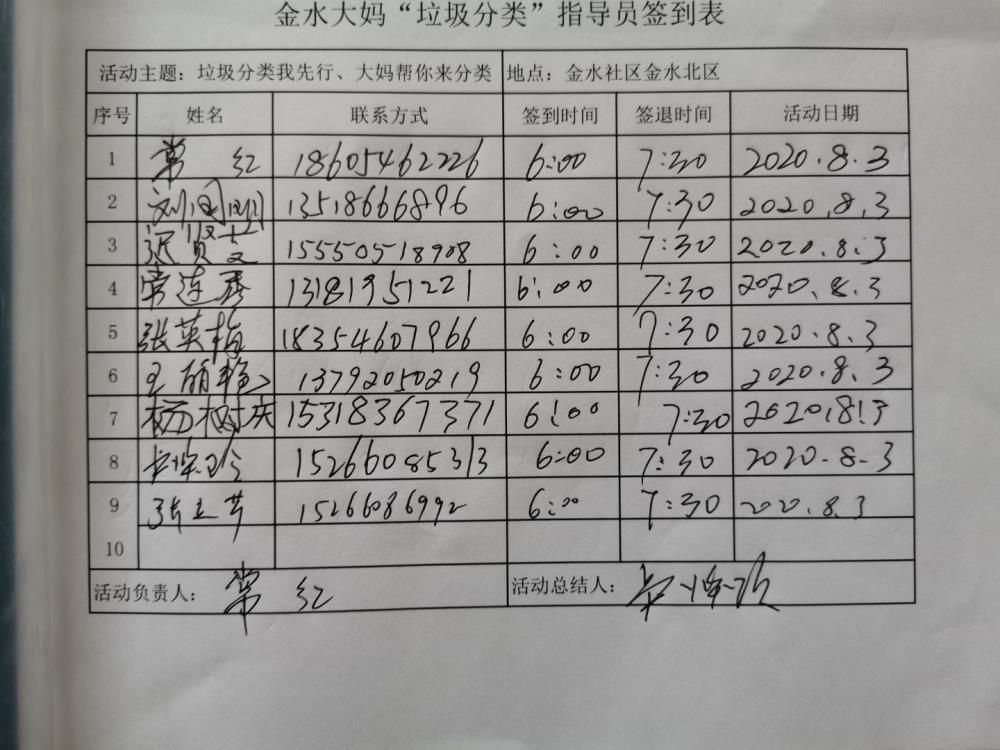 金水大妈“垃圾分类”指导员签到表
活动主题：垃圾分类我先行、大妈帮你来分类 地点：金水社区金水北区
序号 姓名 联系方式 签到时间 签退时间 活动日期
1 常红 18605462226 6:00 7:30 2020.8.3
2 刘国明 13518666896 6:00 7:30 2020.8.3
3 张贤文 15550518908 6:00 7:30 2020.8.3
4 常连秀 13181951221 6:00 7:30 2020.8.3
5 张英梅 18354607966 6:00 7:30 2020.8.3
6 王丽艳 13792050219 6:00 7:30 2020.8.3
7 杨树庆 15318367371 6:00 7:30 2020.8.3
8 15266085313 6:00 7:30 2020.8.3
9 15266086992 6:00 7:30 2020.8.3
10
活动负责人：常红 活动总结人：